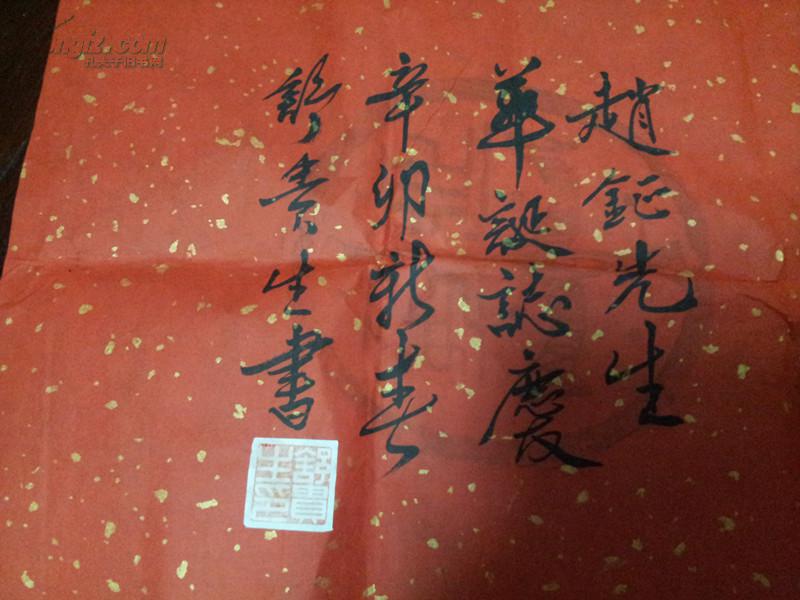 趙鉦先生
華誕誌慶
辛卯新春
貴生書
ngfz.com
孔夫子旧书网